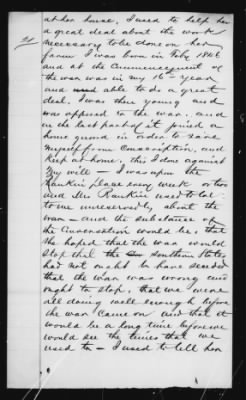 at her house, I used to help her
a great deal about the work
necessary to be done on her
farm I was born in Feby 1846
and at the Commencement of
the war was in my 16th year
and able to do a great
deal. I was then young and
was opposed to the war, and
in the last part of it joined a
home guard in order to save
myself from Conscription, and
keep at home, this I done against
my will — I was upon the
Rankin place every week or two
and Mrs Rankin used to talk
to me unreservedly, about the
war — and the substance of
the Conversation would be, that
she hoped that the war would
stop that the southern States
had not ought to have seceded
that the war was wrong and
ought to stop, that we were
all doing well enough before
the war came on and that it
would be a long time before we
would see the times that we
used to — I used to tell her